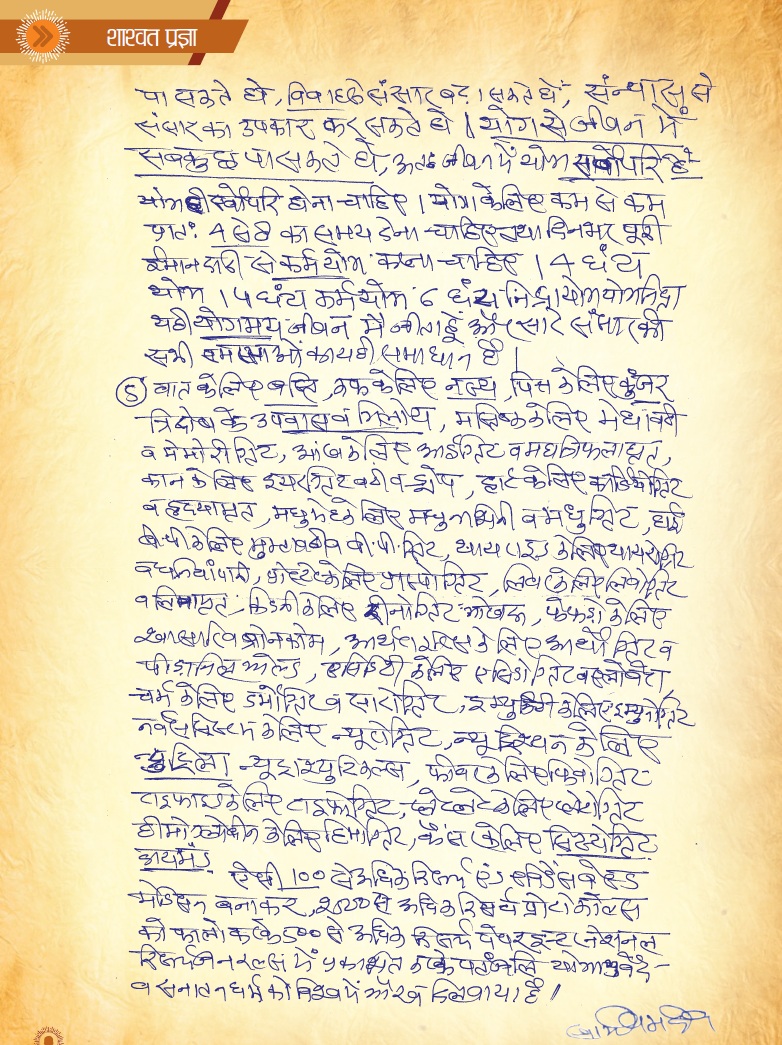 शाश्वत प्रज्ञा
पा सकते हैं, विवाह से संसार बढ़ा सकते हैं, संन्यास से
संसार का उपकार कर सकते हैं। योग से जीवन में
सबकुछ पा सकते हैं, अतः जीवन में योग सर्वोपरि है
योग ही सर्वोपरि होना चाहिए। योग के लिए कम से कम
प्रातः 4 से 8 का समय देना चाहिए तथा दिनभर पूरी
ईमानदारी से कर्मयोग करना चाहिए। 4 घंटे
योग। घंटे कर्मयोग 6 घंटे निद्रा योग योगनिद्रा
यही योगमय जीवन मैं जीता हूँ और सारे संसार की
सभी समस्याओं का यही समाधान है।
5 वात के लिए बस्ति, कफ के लिए नस्य, पित्त के लिए कुंजर
त्रिदोष के उपवास व गिलोय, मस्तिष्क के लिए मेधावटी
व मेमोरीग्रिट, आंख के लिए आईग्रिट व महात्रिफलाघृत,
कान के लिए इयरग्रिट वटी व ड्रोप, हार्ट के लिए कार्डियोग्रिट
व हृदयामृत, मधुमेह के लिए मधुनाशिनी व मधुग्रिट, हाई
बी.पी के लिए मुक्तावटी व बी.पी.ग्रिट, थायराइड के लिए थायरोग्रिट
व धनियां पानी, प्रोस्टेट के लिए प्रोस्टोग्रिट, लिवर के लिए लिवोग्रिट
व लिवामृत, किडनी के लिए रीनोग्रिट, फेफड़ों के लिए
श्वासारि व ब्रोनकोम, आर्थराइटिस के लिए आर्थोग्रिट व
पीड़ानिल गोल्ड, एसिडिटी के लिए एसिडोग्रिट व
चर्म के लिए डर्माग्रिट व सोरोग्रिट, इम्युनिटी के लिए इम्युनोग्रिट
नर्वस सिस्टम के लिए न्यूरोग्रिट, न्यूट्रिशन के लिए
न्यूट्रिला फीवर के लिए फिवोग्रिट
टाइफाइड के लिए टाइफोग्रिट, प्लेटलेट के लिए प्लेटोग्रिट
हीमोग्लोबीन के लिए हिमोग्रिट, कैंसर के लिए सिस्टोग्रिट
डायमंड
ऐसी 100 से अधिक रिसर्च एंड एविडेंस बेस्ड
मेडिसिन बनाकर, से अधिक रिसर्च प्रोटोकॉल्स
को फालो करके 500 से अधिक रिसर्च पेपर इन्टरनेशनल
रिसर्च जनरल्स में प्रकाशित करके पतंजलि योग आयुर्वेद
व सनातन धर्म को विश्व में गौरव दिलवाया है।